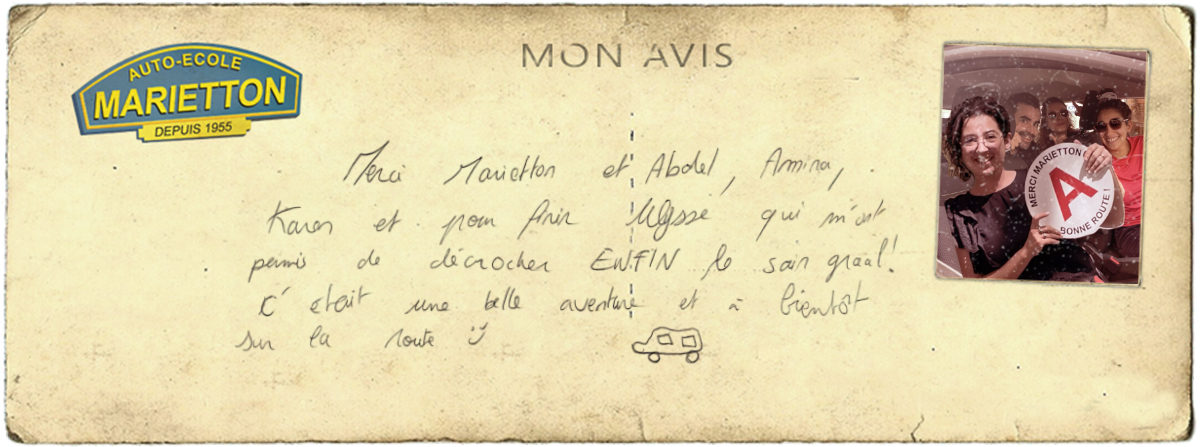 AUTO-ECOLE
MARIETTON
DEPUIS 1955
MON AVIS
Merci Marietton et Abdel, Amina,
Karen et pour finir Ulysse qui m'ont
permis de décrocher ENFIN le sain graal!
C'était une belle aventure et à bientôt
sur la route
MERCI MARIETTON
A
BONNE ROUTE !